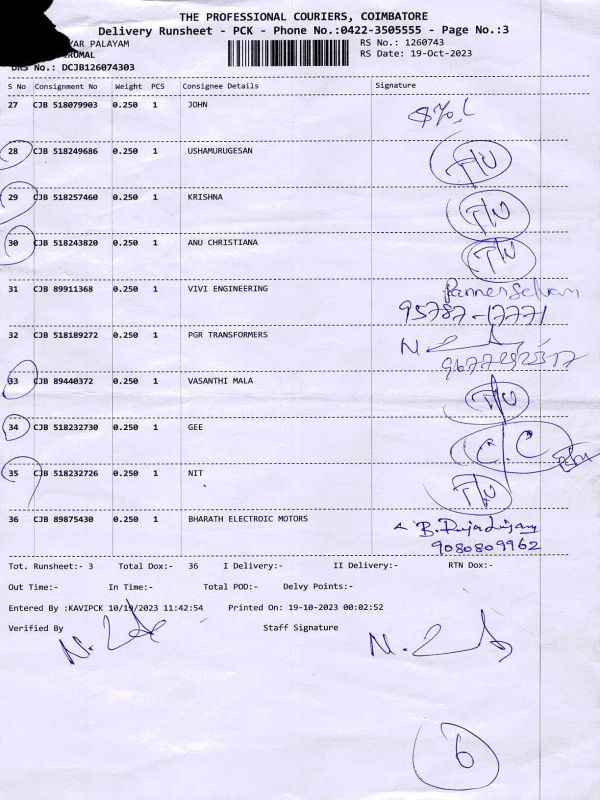 THE PROFESSIONAL COURIERS, COIMBATORE
Delivery Runsheet - PCK - Phone No.:0422-3505555 - Page No.:3
YAR PALAYAM
RS No.: 1260743
RS Date: 19-Oct-2023
DRS No.: DCJB126074303
S No Consignment No Weight PCS Consignee Details Signature
27 CJB 518079903 0.250 1 JOHN
28 CJB 518249686 0.250 1 USHAMURUGESAN T/U
29 CJB 518257460 0.250 1 KRISHNA T/U
30 CJB 518243820 0.250 1 ANU CHRISTIANA T/U
31 CJB 89911368 0.250 1 VIVI ENGINEERING Panner Selvam
95787-17771
32 CJB 518189272 0.250 1 PGR TRANSFORMERS N.
33 CJB 89440372 0.250 1 VASANTHI MALA T/U
34 CJB 518232730 0.250 1 GEE C.C
35 CJB 518232726 0.250 1 NIT T/U
36 CJB 89875430 0.250 1 BHARATH ELECTROIC MOTORS B.
9080809962
Tot. Runsheet:- 3 Total Dox:- 36 I Delivery:- II Delivery:- RTN Dox:-
Out Time:- In Time:- Total POD:- Delvy Points:-
Entered By :KAVIPCK 10/19/2023 11:42:54 Printed On: 19-10-2023 00:02:52
Verified By Staff Signature
N. N.
6